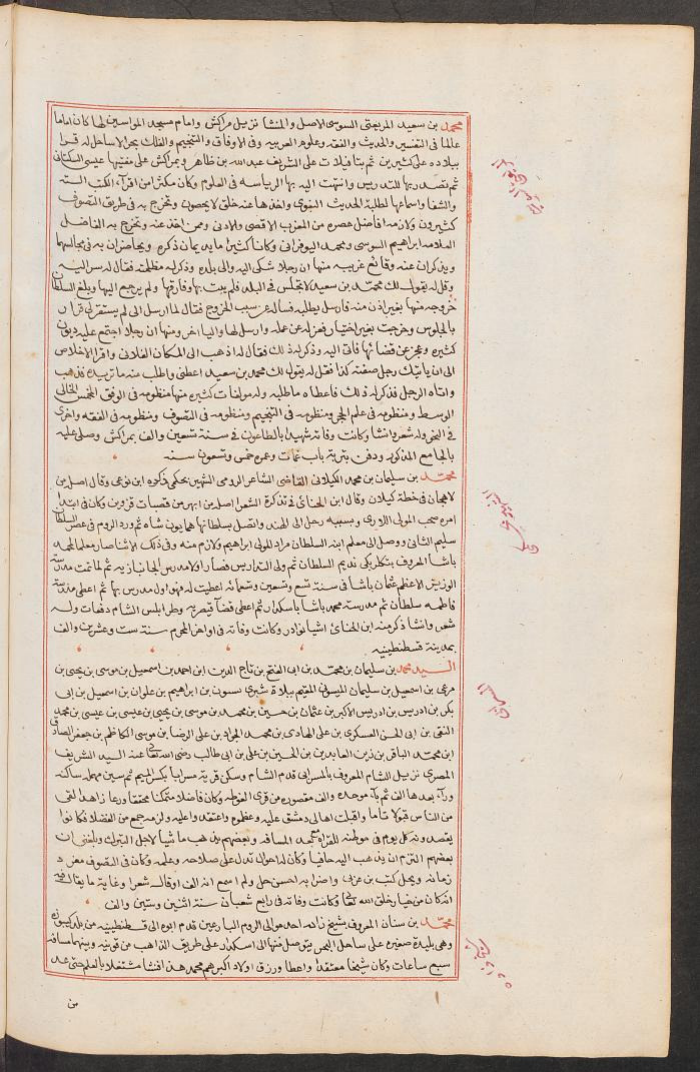 محمد بن سعيد المرغتى السوسى الاصل والمنشا نزيل مراكش وامام مسجد المواسين لها كان اماما
عالما فى التفسير والحديث والفقه وعلوم العربيه وفى الاوفاق والتنجيم والفلك بحرا لا ساحل له قرا
ببلاده على كثيرين ثم بتافيلات على الشريف عبد الله بن طاهر وبمراكش على مفتيها عيسى السكتانى
ثم تصدر بها للتدريس وانتهت اليه بها الرياسه فى العلوم وكان مكثرا من اقراء الكتب السته
والشفا واسماعها لطلبة الحديث النبوى واخذها عنه خلق لا يحصون وتخرج به فى طريق التصوف
كثيرون ولازمه افاضل عصره من المغرب الاقصى والادنى وممن اخذ عنه وتخرج به الفاضل
العلامه ابراهيم السوسى ومحمد اليوفرانى وكانا كثيرا ما يديمان ذكره ويحاضران به فى مجالسهما
ويذكران عنه وقائع غريبه منها ان رجلا شكى اليه والى بلده وذكر له مظلمته فقال له سر اليه
وقل له يقول لك محمد بن سعيد لا تجلس فى البلد فلم يبت بها وفارقها ولم يرجع اليها وبلغ السلطان
خروجه منها بغير اذن منه فارسل يطلبه فساله عن سبب الخروج فقال لما ارسل الى لم يستقر لى قرار
بالجلوس وخرجت بغير اختيار فعزله عن عمله وارسل لها واليا اخر ومنها ان رجلا اجتمع عليه ديون
كثيره وعجز عن قضائها فاتى اليه وذكر له ذلك فقال له اذهب الى المكان الفلانى واقرا الاخلاص
الى ان ياتيك رجل صفته كذا فقل له يقول لك محمد بن سعيد اعطنى واطلب منه ما تريده فذهب
واتاه الرجل فذكر له ذلك فاعطاه ما طلبه وله مولفات كثيره منها منظومه فى الوفق المخمس الخالى
الوسط ومنظومه فى علم الحى ومنظومه فى التنجيم ومنظومه فى التصوف ومنظومه فى الفقه واخرى
فى النحو وله شعر وانشا وكانت وفاته شهيد بالطاعون فى سنة تسعين والف بمراكش وصلى عليه
بالجامع المذكور ودفن بتربة باب غمات وعمره خمس وتسعون سنه
محمد بن سليمان بن محمد الكيلانى القاضى الشاعر الرومى الشهير بحكمى ذكره ابن نوعى وقال اصله من
لاهجان فى خطة كيلان وقال ابن الحنائى فى تذكرة الشعرا اصله من ابهر من قصبات قزوين وكان فى ابتدا
امره صحب المولى اللارى وبسببه رحل الى الهند واتصل بسلطانها همايون شاه ثم ورد الروم فى عصر السلطان
سليم الثانى ووصل الى معلم ابنه السلطان مراد المولى ابراهيم ولازم منه وفى ذلك الاثنا صار معلما لمحمد
باشا المعروف بتكلربكى نديم السلطان ثم ولى التدريس فصار اولا مدرس الجانبازيه ثم لما تمت مدرسة
الوزير الاعظم عثمان باشا فى سنة تسع وتسعين وتسعمائه اعطيت له فهو اول مدرس بها ثم اعطى مدرسة
فاطمه سلطان ثم مدرسة محمد باشا باسكدار ثم اعطى قضا قيصريه وطرابلس الشام دفعات وله
شعر وانشا ذكر منه ابن الحنائى اشيا نوادر وكانت وفاته فى اواخر المحرم سنة ست وعشرين والف
بمدينة قسطنطينيه
السيد محمد بن سليمان بن محمد بن ابى الفتح بن تاج الدين ابن احمد بن اسمعيل بن موسى بن يحيى بن
مرعى بن اسمعيل بن سليمان الميسونى المقيم ببلاة شبرى بسيون بن ابراهيم بن علوان بن اسمعيل بن ابى
بكر بن ادريس بن ادريس الاكبر بن عثمان بن حسين بن محمد بن موسى بن يحيى بن عيسى بن عيسى بن محمد
التقى بن ابى الحسن العسكرى بن على الهادى بن محمد الجواد بن على الرضا بن موسى الكاظم بن جعفر الصادق
ابن محمد الباقر بن زين العابدين بن الحسين بن على بن ابى طالب رضى الله تعالى عنه السيد الشريف
المصرى نزيل الشام المعروف بالمسرابى قدم الشام وسكن قرية مسرابا بكسر الميم ثم سين مهمله ساكنه
وراء بعدها الف ثم باء موحده والف مقصوره من قرى الغوطه وكان فاضلا متمكنا محققا ورعا زاهدا لقى
من الناس قبولا تاما واقبلت اهالى دمشق عليه وعظموه واعتقد واعليه ولزمه جمع من الفضلا فكانوا
يقصدونه كل يوم فى موطنه للقراه مع بعد المسافه وبعضهم يذهب ماشيا لاجل التبرك وبلغنى ان
بعضهم التزم ان يذهب اليه حافيا وكان له احوال تدل على صلاحه وعلمه وكان فى التصوف مفرد
زمانه ويحل كتب بن عربى واضرابه احسن حل ولم اسمع انه الف او قال شعرا وغاية ما يقال فيه
انه كان من خيار خلق الله تعالى وكانت وفاته فى رابع شعبان سنة اثنين وستين والف
محمد بن سنان المعروف بشيخ زاده احد موالى الروم البارعين قدم ابوه الى قسطنطينيه من بلده كيبوزه
وهى بليدة صغيره على ساحل البحر يتوصل منها الى اسكدار على طريق الذاهب من قونيه وبينهما مسافة
سبع ساعات وكان شيخا معتقدا واعطا ورزق اولاد اكبرهم محمد هذا فنشا مشتغلا بالعلم حتى عد
من